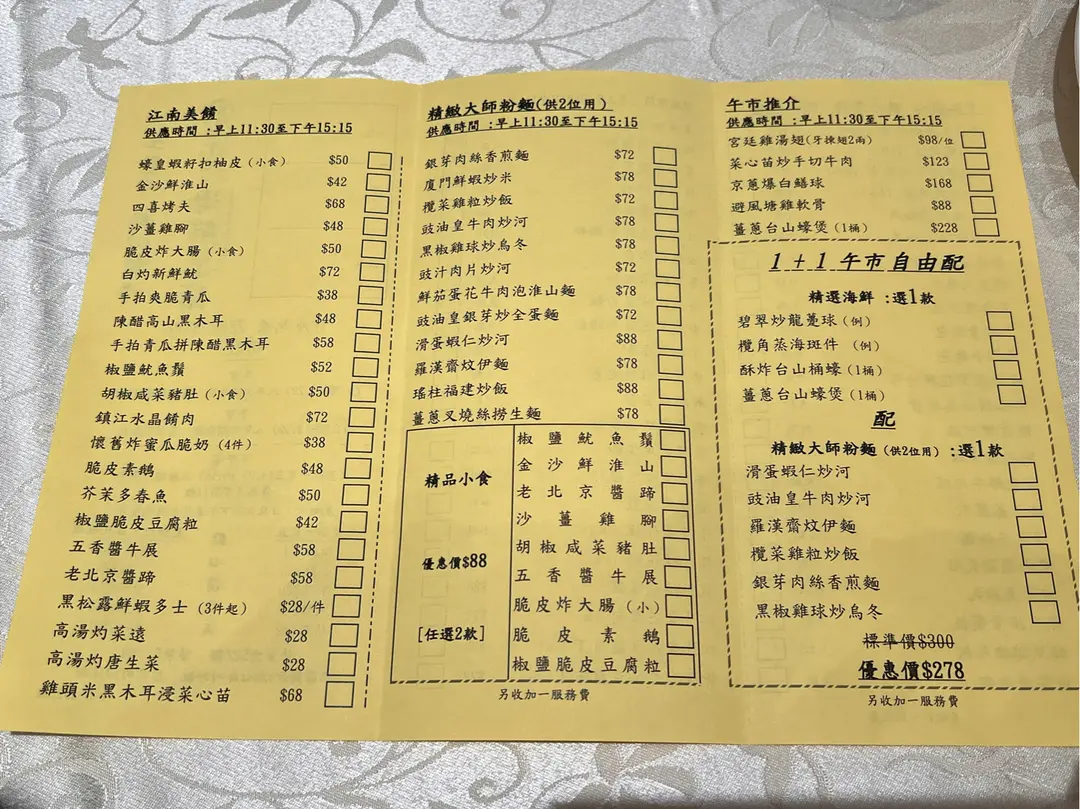 江南美餚
供應時間 :早上11:30至下午15:15
蠔皇蝦籽扣柚皮 (小食) $50
金沙鮮淮山 $42
四喜烤夫 $68
沙薑雞腳 $48
脆皮炸大腸 (小食) $50
白灼新鮮魷 $72
手拍爽脆青瓜 $38
陳醋高山黑木耳 $48
手拍青瓜拼陳醋黑木耳 $58
椒鹽魷魚鬚 $52
胡椒咸菜豬肚 (小食) $50
鎮江水晶餚肉 $72
懷舊炸蜜瓜脆奶 (4件) $38
脆皮素鵝 $48
芥茉多春魚 $50
椒鹽脆皮豆腐粒 $42
五香醬牛展 $58
老北京醬蹄 $58
黑松露鮮蝦多士 (3件起) $28/件
高湯灼菜遠 $28
高湯灼唐生菜 $28
雞頭米黑木耳浸菜心苗 $68
精緻大師粉麵(供2位用)
供應時間 :早上11:30至下午15:15
銀芽肉絲香煎麵 $72
廈門鮮蝦炒米 $78
欖菜雞粒炒飯 $72
豉油皇牛肉炒河 $78
黑椒雞球炒烏冬 $78
豉汁肉片炒河 $72
鮮茄蛋花牛肉泡淮山麵 $78
豉油皇銀芽炒全蛋麵 $72
滑蛋蝦仁炒河 $88
羅漢齋炆伊麵 $78
瑤柱福建炒飯 $88
薑蔥叉燒絲撈生麵 $78
精品小食
優惠價$88
[任選2款]
椒鹽魷魚鬚
金沙鮮淮山
老北京醬蹄
沙薑雞腳
胡椒咸菜豬肚
五香醬牛展
脆皮炸大腸 (小)
脆皮素鵝
椒鹽脆皮豆腐粒
另收加一服務費
午市推介
供應時間 :早上11:30至下午15:15
宮廷雞湯翅(牙揀翅2兩) $98/位
菜心苗炒手切牛肉 $123
京蔥爆白鱔球 $168
避風塘雞軟骨 $88
薑蔥台山蠔煲 (1桶) $228
1+1午市自由配
精選海鮮 :選1款
碧翠炒龍躉球 (例)
欖角蒸海斑件 (例)
酥炸台山桶蠔 (1桶)
薑蔥台山蠔煲 (1桶)
配
精緻大師粉麵 (供2位用) :選1款
滑蛋蝦仁炒河
豉油皇牛肉炒河
羅漢齋炆伊麵
欖菜雞粒炒飯
銀芽肉絲香煎麵
黑椒雞球炒烏冬
標準價$300
優惠價$278
另收加一服務費